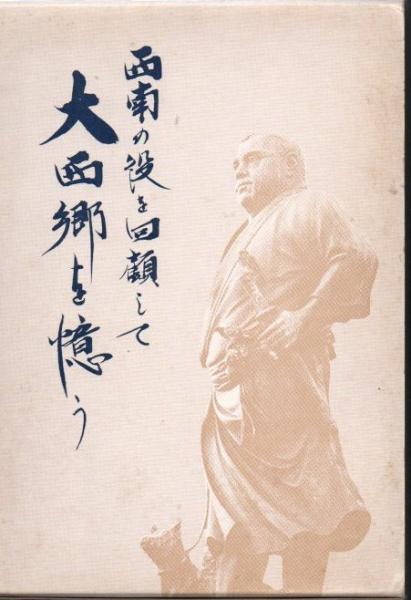 西南の役を回顧して
大西郷を憶う